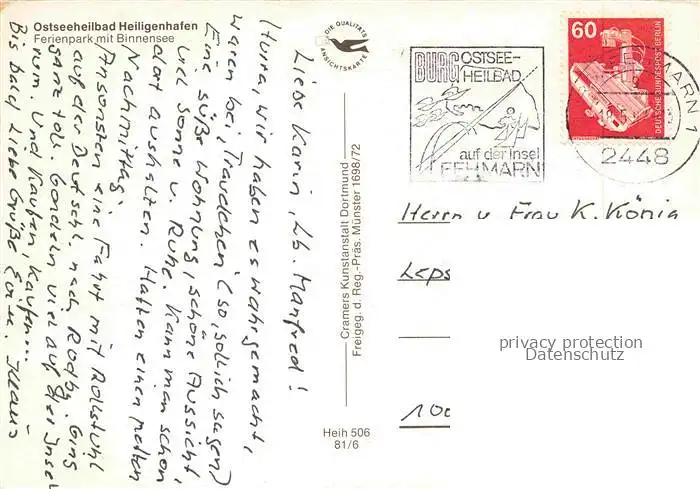 Ostseeheilbad Heiligenhafen
Ferienpark mit Binnensee
DIE QUALITÄTS
ANSICHTSKARTE
BURG OSTSEE-
HEILBAD
auf der Insel
FEHMARN
60
DEUTSCHE BUNDESPOST BERLIN
2448
Liebe Karin, Lb. Manfred!
Hura, wir haben es wahrgemacht,
waren bei "Traudchen" (so, sollich sagen)
Eine süße Wohnung, schöne Aussicht,
viel Sonne u. Ruhe. Kann man schon
dort aushalten. Hatten einen netten
Nachmittag.
Ansonsten eine Fahrt mit Rollstuhl
auf der Deutschl. nach Rodby. Ging
ganz toll. Gondeln viel auf der Insel
rum. Und Kaufen, kaufen...
Bis bald Liebe Grüße Eure Klaus
Cramers Kunstanstalt Dortmund
Freigeg. d. Reg.-Präs. Münster 1698/72
Heih 506
81/6
Herrn u Frau K. König
Leps
100
privacy protection
Datenschutz